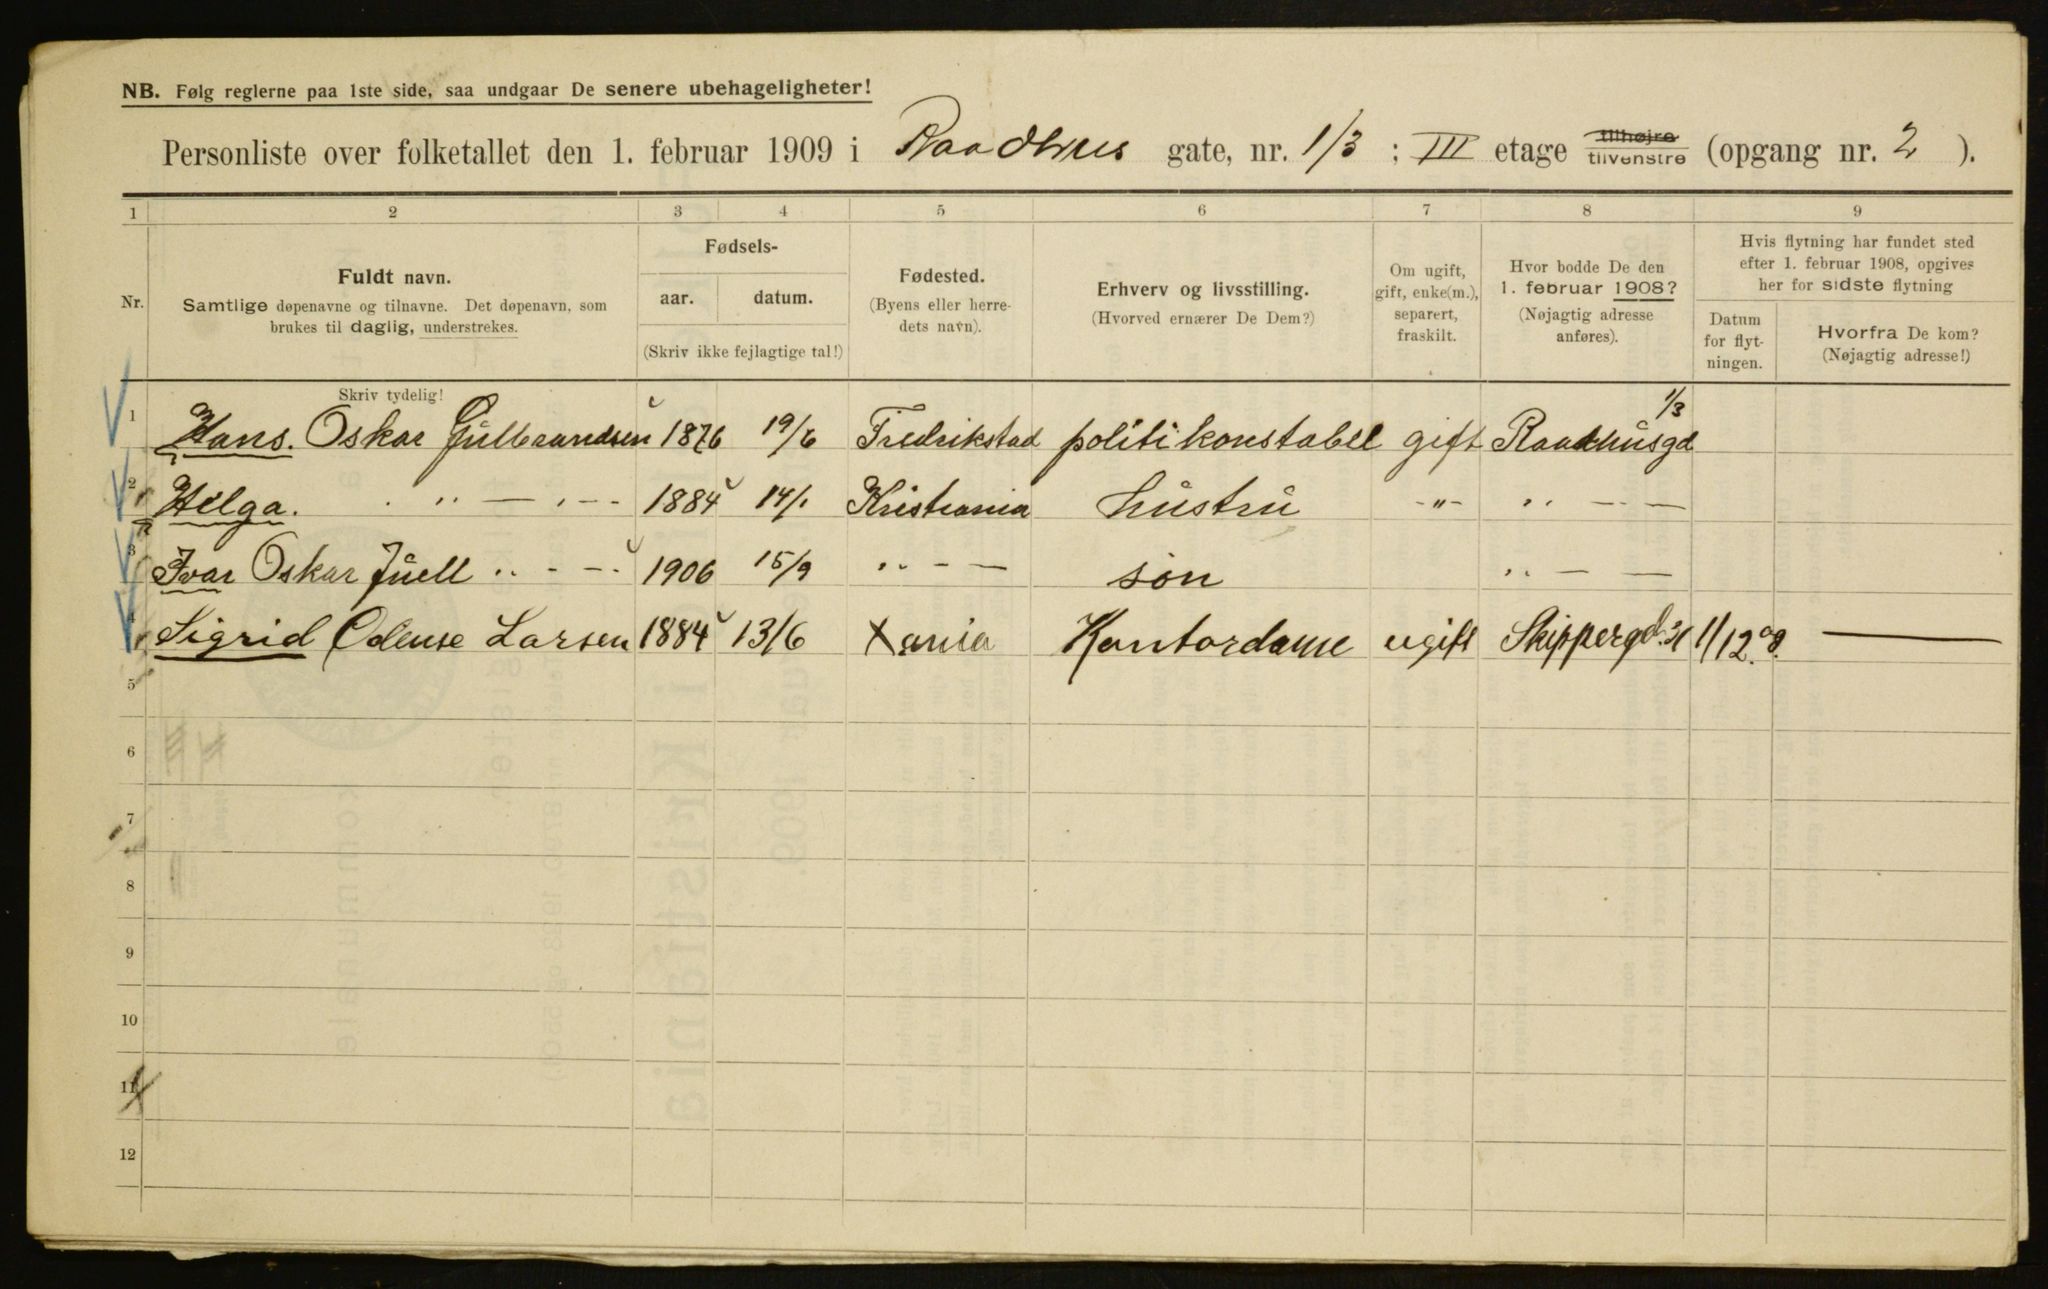 NB. Følg reglerne paa 1ste side, saa undgaar De senere ubehageligheter!
Personliste over folketallet den 1. februar 1909 i Raadhus gate, nr. 1/3 ; III etage tilhøjre tilvenstre (opgang nr. 2 ).
1 2 3 4 5 6 7 8 9
Nr.
Fuldt navn.
Samtlige døpenavne og tilnavne. Det døpenavn, som
brukes til daglig, understrekes.
Fødsels-
aar. datum.
(Skriv ikke fejlagtige tal!)
Fødested.
(Byens eller herre-
dets navn).
Erhverv og livsstilling.
(Hvorved ernærer De Dem?)
Om ugift,
gift, enke(m.),
separert,
fraskilt.
Hvor bodde De den
1. februar 1908?
(Nøjagtig adresse
anføres).
Hvis flytning har fundet sted
efter 1. februar 1908, opgives
her for sidste flytning
Datum
for flyt-
ningen.
Hvorfra De kom?
(Nøjagtig adresse!)
Skriv tydelig!
1 Hans. Oskar Gulbrandsen 1876 19/6 Fredrikstad politikonstabel gift Raadhusgd 1/3
2 Helga. " — " — 1884 14/1 Kristiania hustru -"- " — —
3 Ivar Oskar Juell " - — 1906 15/9 " — — søn " — —
4 Sigrid Odense Larsen 1884 13/6 Xania Kontordame ugift Skippergd. 21 1/12.08. —
5
6
7
8
9
10
11
12